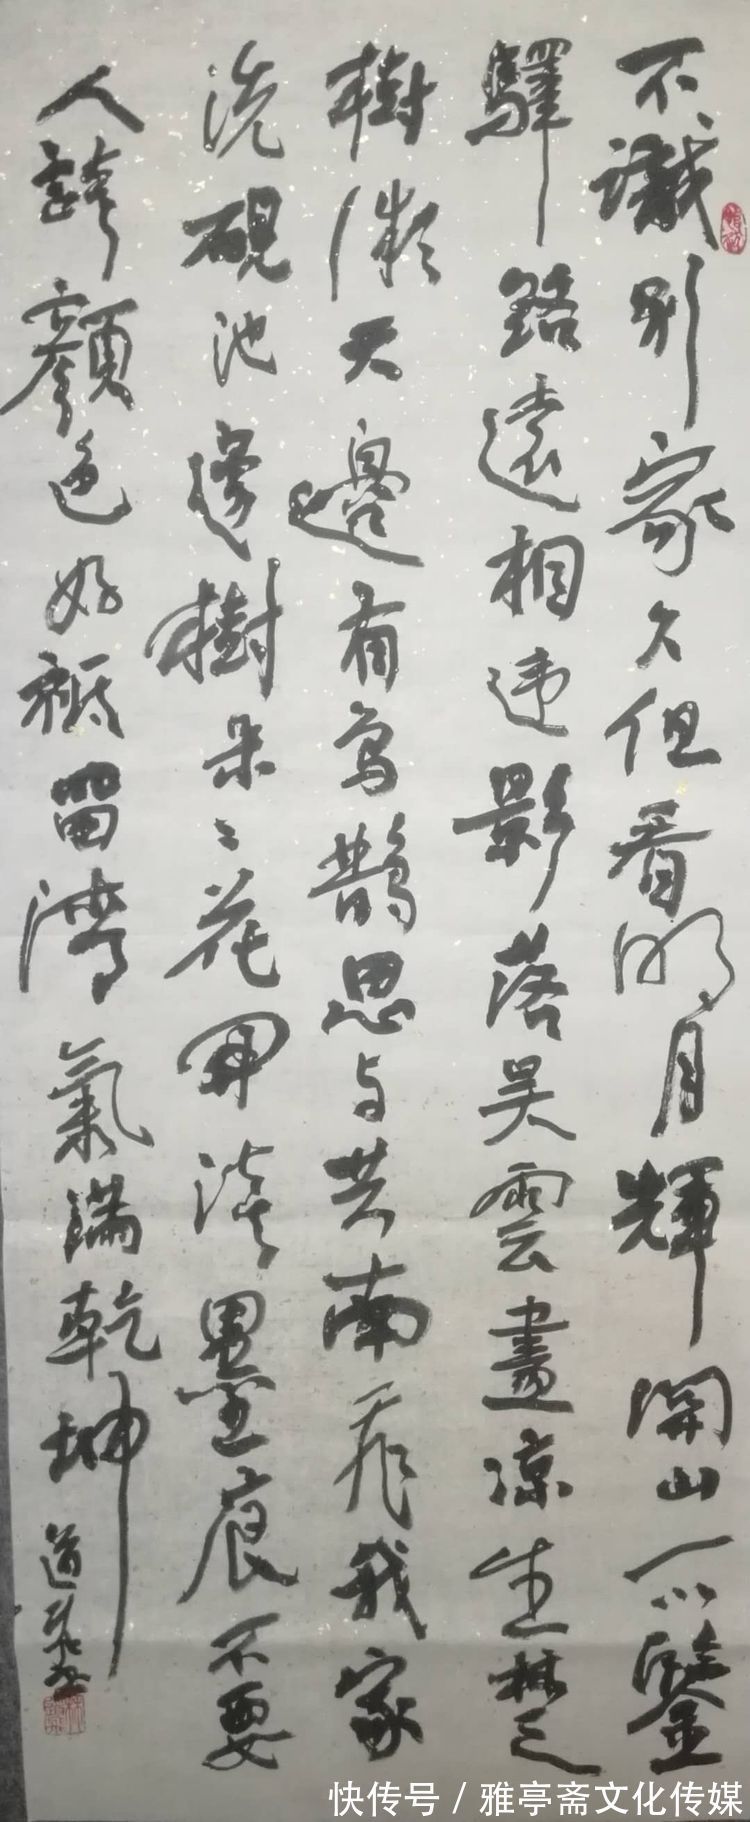 不識別家久但看明月輝関山一以鑒
驛路遠相違影落吳雲盡涼生楚
樹微天邊有烏鵲思与共南飛我家
洗硯池邊樹朵〻花開淡墨痕不要
人誇顏色好祇留清氣滿乾坤
道
快传号 / 雅亭斋文化传媒